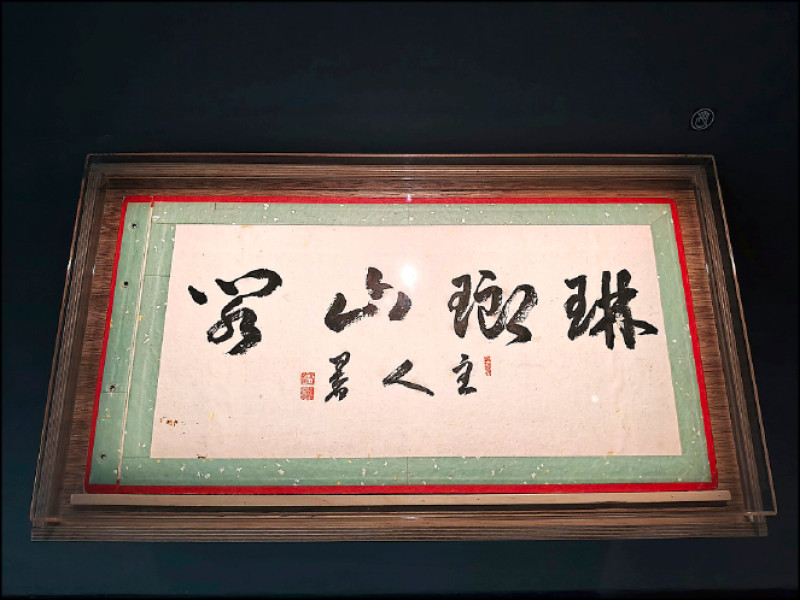 琳瑯山閣
主人署